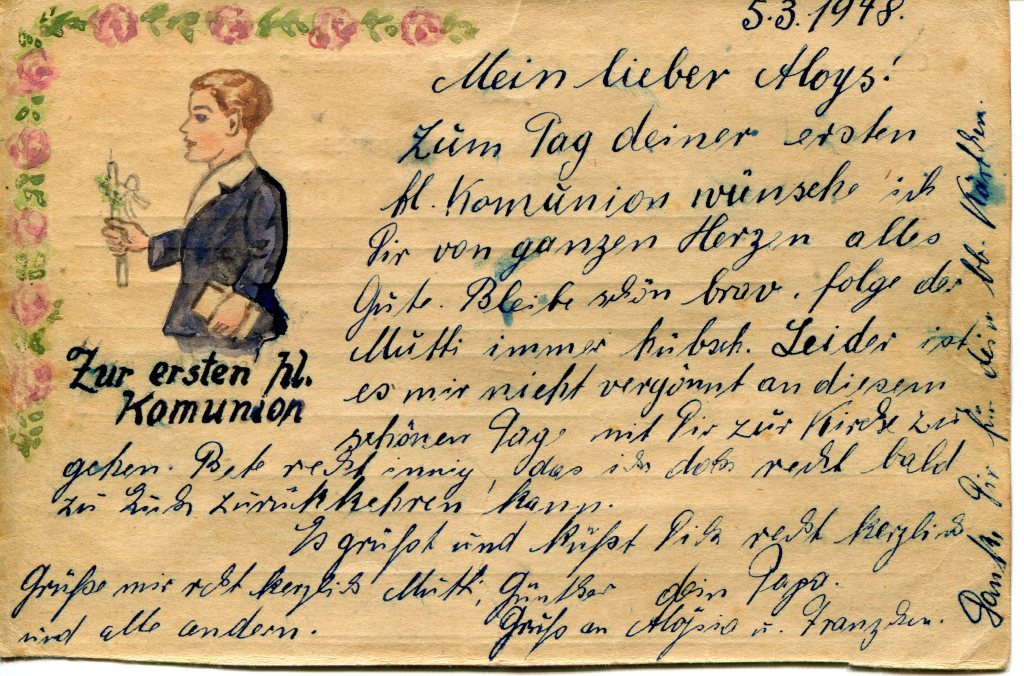 5.3.1948.
Mein lieber Aloys!
Zum Tag deiner ersten
hl. Komunion wünsche ich
Dir von ganzen Herzen alles
Gute. Bleibe schön brav, folge der
Mutti immer hübsch. Leider ist
es mir nicht vergönnt an diesem
schönen Tage mit Dir zur Kirche zu
gehen. Bete recht innig, das ich doch recht bald
zu Euch zurückkehren kann.
Es grüßt und küßt Dich recht herzlich
dein Papa.
Grüße mir recht herzlich Mutti, Günther
und alle andern.
Gruß an Aloysia u. Franzchen.
Zur ersten hl.
Komunion
Danke Dir für dein lb. Kärtchen.